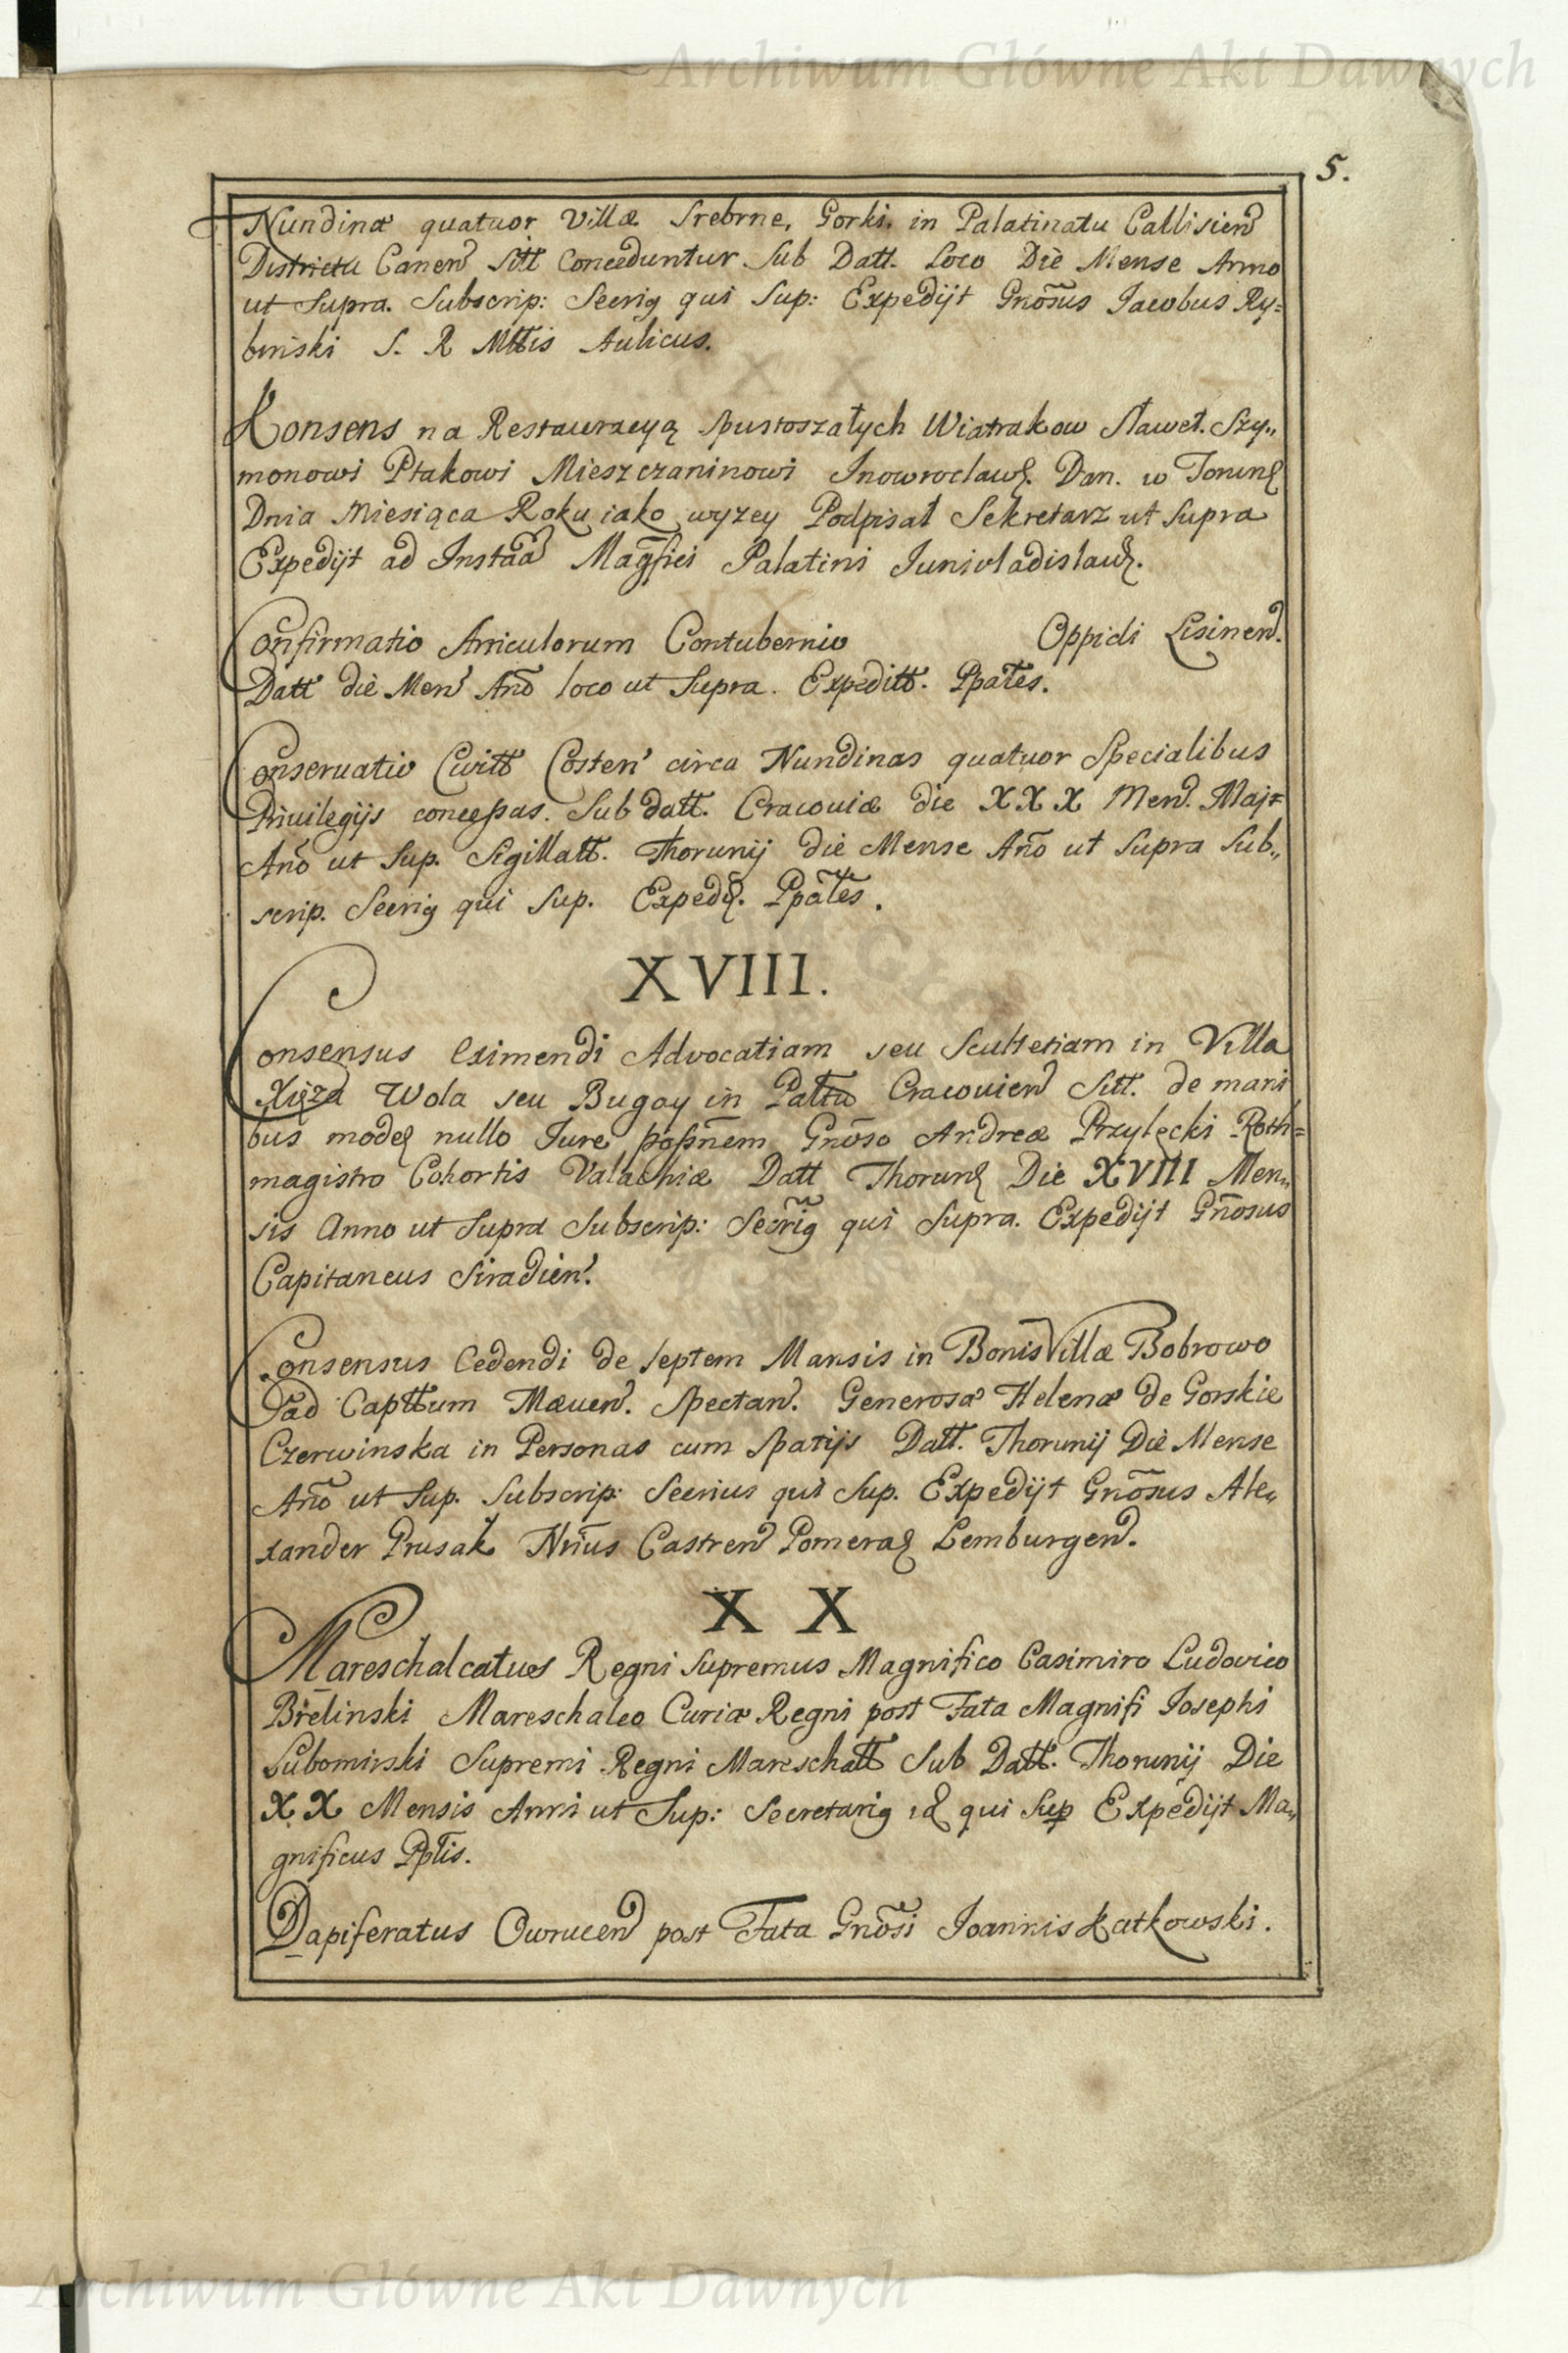 Archiwum Główne Akt Dawnych
5.
Nundinæ quatuor Villæ Srebrne, Gorki, in Palatinatu Callisien
Districtu Canen Sitt Conceduntur Sub Datt. Loco Diè Mense Anno
ut Supra. Subscrip: Secrig qui Sup: Expedijt Gnõsus Jacobus Ry=
binski S. R Mttis Aulicus.
Konsens na Restauracyą Spustoszałych Wiatrakow Sławet. Szy„
monowi Ptakowi Mieszczaninowi Inowroclaw. Dan. w Torun
Dnia Miesiąca Roku iako wyzey Podpisał Sekretarz ut Supra
Expedijt ad Instaã Magfici Palatini Junivladislaw.
Confirmatio Articulorum Contubernio Oppidi Lisinen.
Datt diè Men Año loco ut Supra. Expeditt. Ppates.
Conseruatio Civitt Costen circa Nundinas quatuor Specialibus
Priuilegijs concessas. Sub datt. Cracouiæ die XXX Men. Maj=
Año ut Sup. Sigillatt. Thorunij die Mense Año ut Supra Sub„
scrip. Secrig qui Sup. Exped. Ppates.
XVIII.
Consensus Eximendi Advocatiam seu Scultetiam in Villa
Xięza Wola seu Bugay in Palttu Cracouien Sitt. de mani
bus modeq nullo Jure possñem Gnõso Andreæ Przyłęcki Roth=
magistro Cohortis Valachiæ Datt Thorun Die XVIII Men„
sis Anno ut Supra Subscrip: Secrig qui Supra. Expedijt Gñosus
Capitaneus Siradien.
Consensus Cedendi de septem Mansis in Bonis Villæ Bobrowo
ad Capttum Mæuen. Spectan. Generosæ Helenæ de Gorskie
Czerwinska in Personas cum Spatijs Datt. Thorunij Diè Mense
Año ut Sup. Subscrip: Secrius qui Sup. Expedijt Gnõsus Ale„
xander Prusak Nrius Castren Pomera Lemburgen.
X X
Mareschalcatues Regni Supremus Magnifico Casimiro Ludovico
Bielinski Mareschalco Curiæ Regni post Fata Magnifi Josephi
Lubomirski Supremi Regni Mareschatt Sub Datt. Thorunij Die
XX Mensis Anni ut Sup: Secretarig id qui Sup Expedijt Ma„
gnificus Pptis.
Dapiferatus Owrucen post Fata Gnõsi Joannis Katkowski.
Archiwum Główne Akt Dawnych